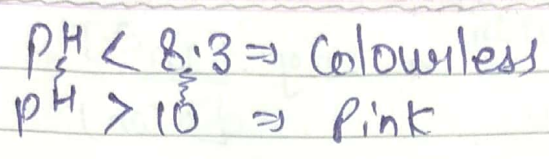 pH < 8.3 ⇒ Colourless
pH > 10 ⇒ Pink